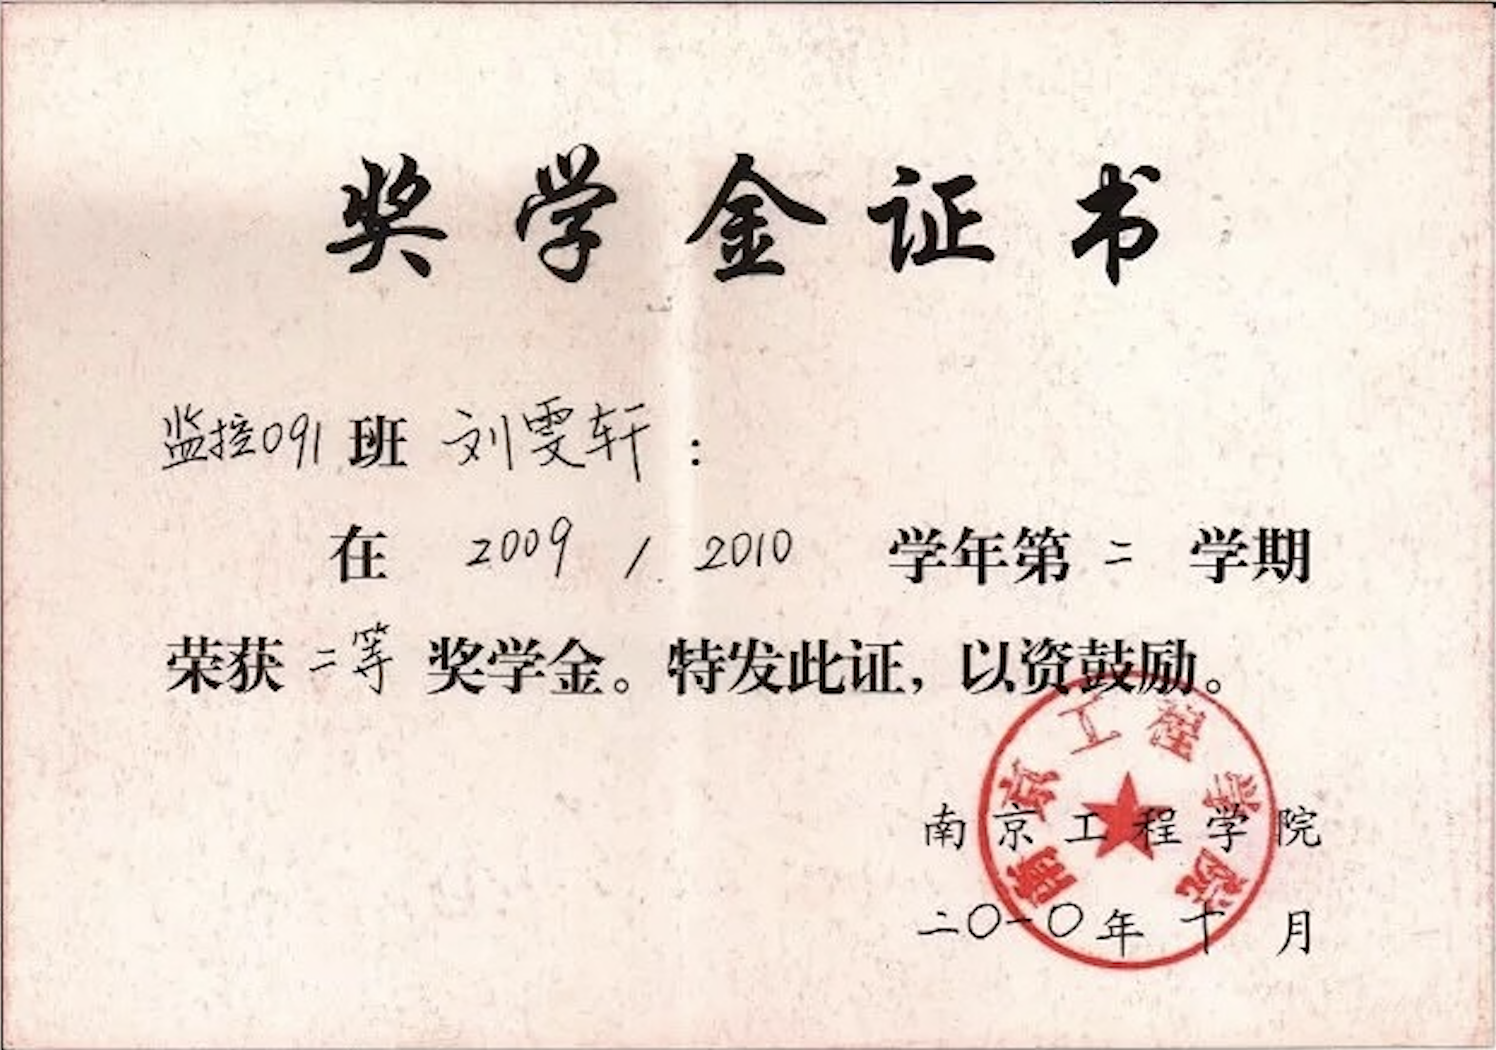 奖学金证书
监控091班 刘雯轩：
在 2009 / 2010 学年第 二 学期
荣获 二等 奖学金。特发此证，以资鼓励。
南京工程学院
南京工程学院
二〇一〇年 十 月